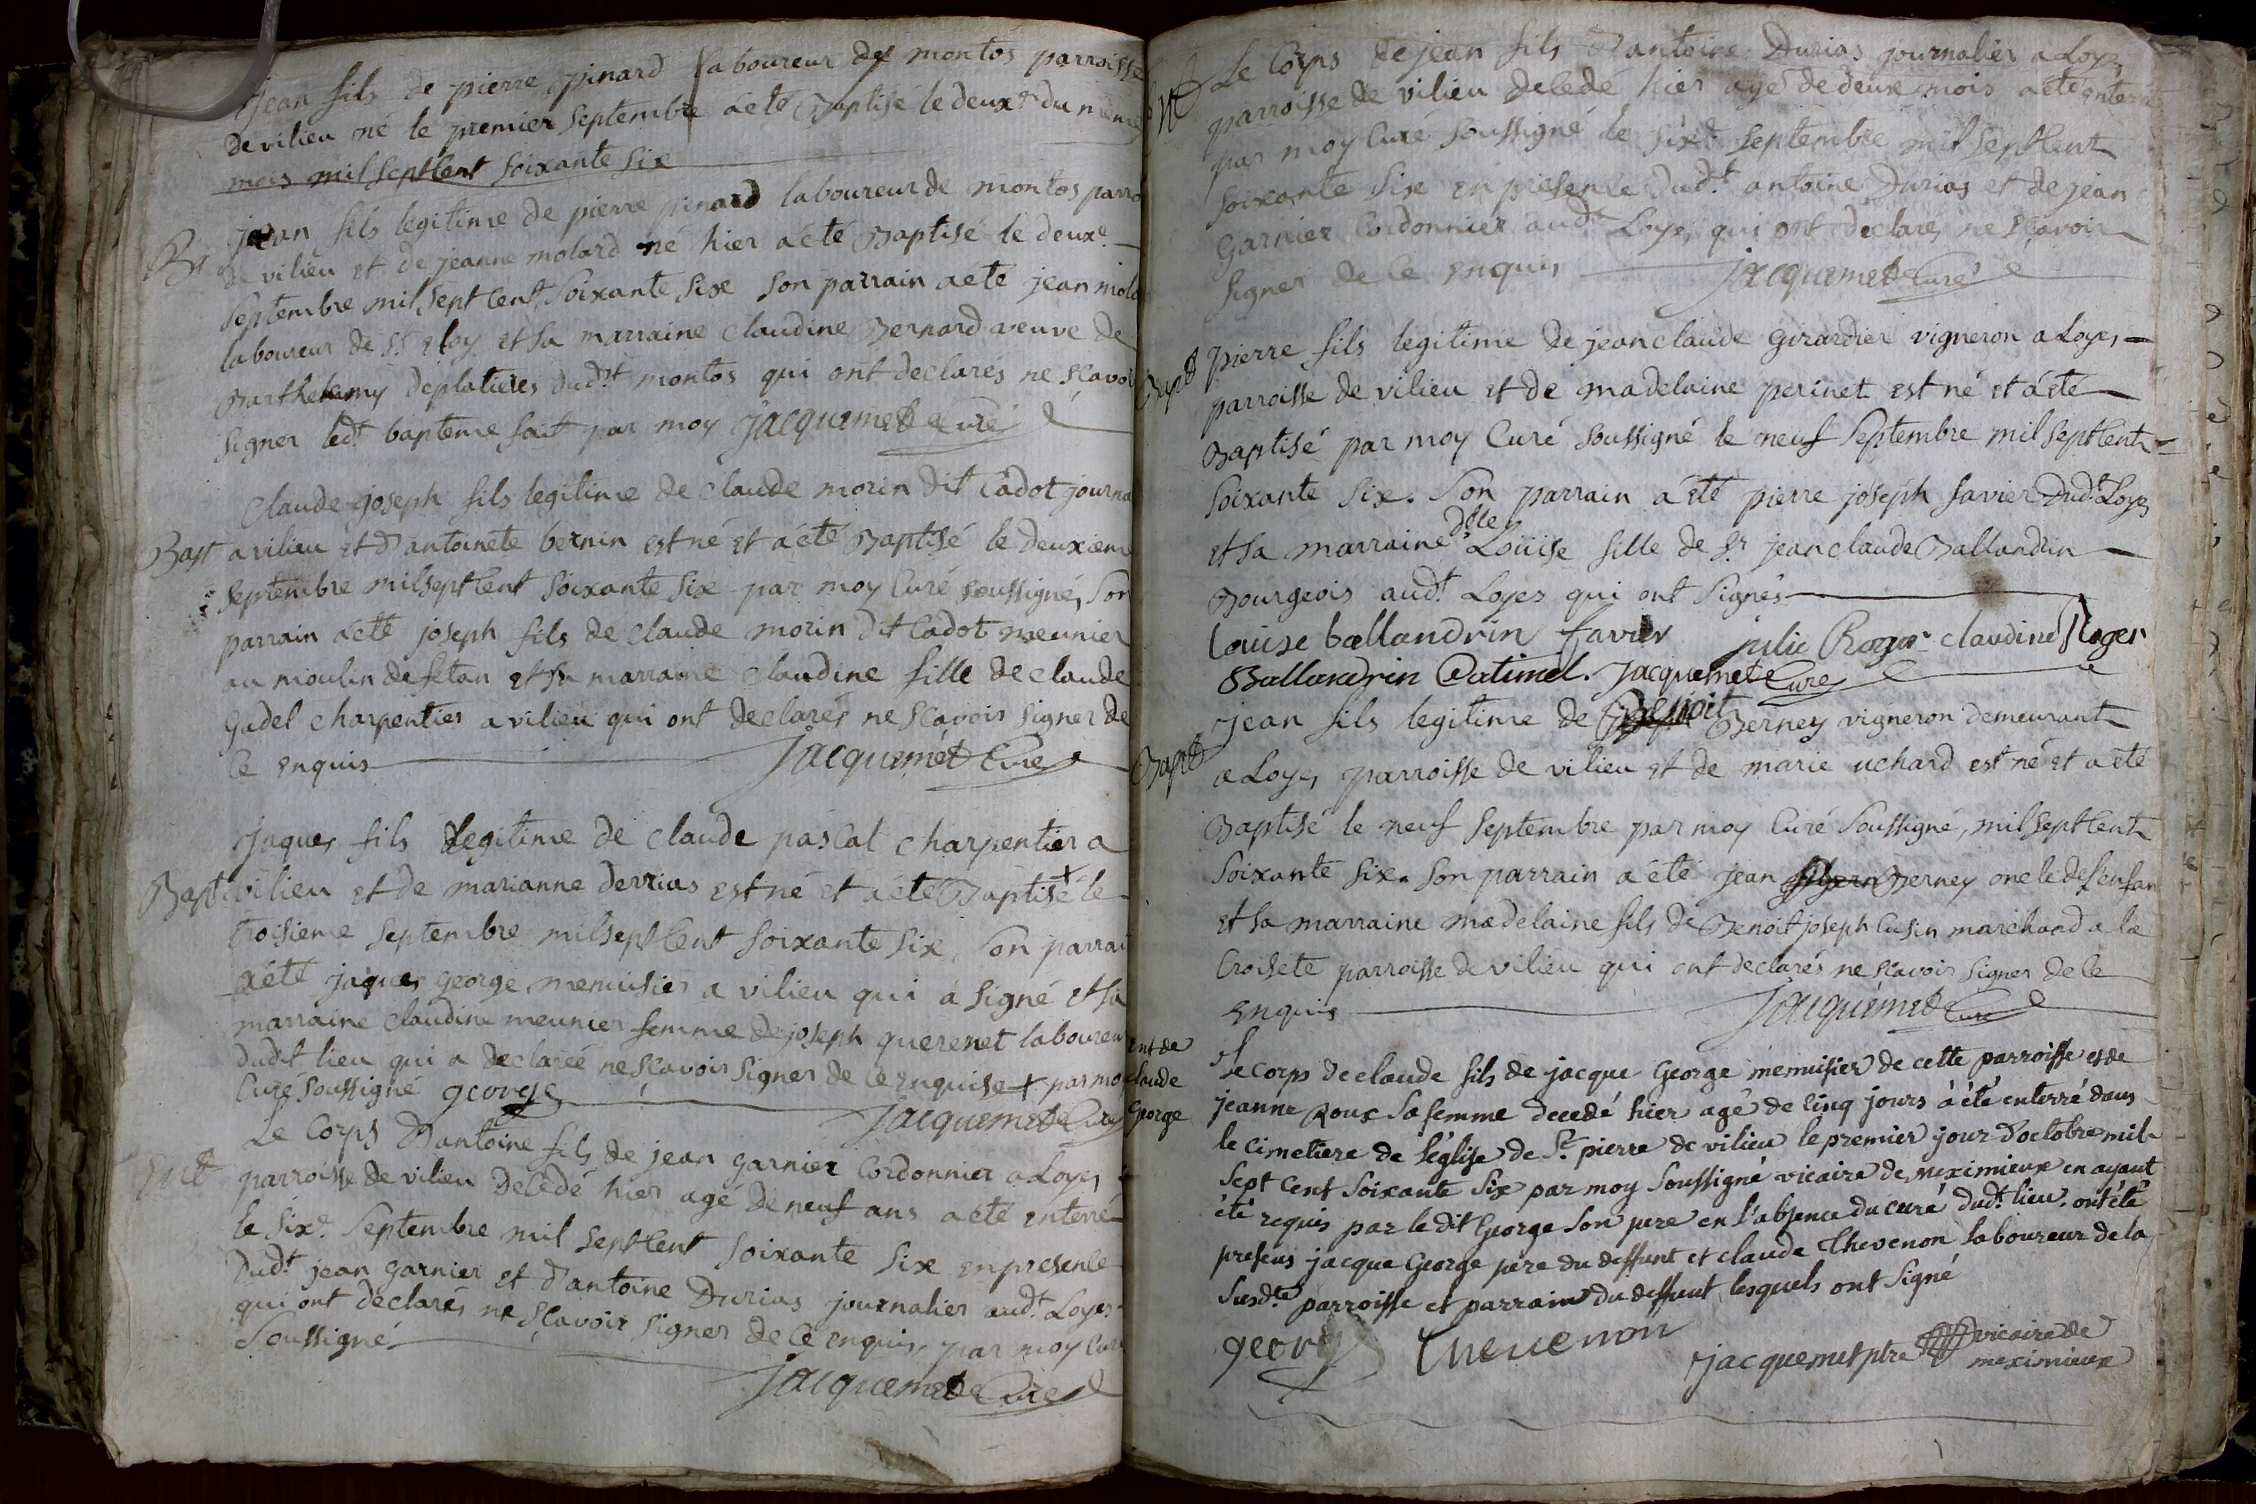 jean fils de pierre pinard laboureur de montos parroisse
de vilieu né le premier septembre a eté Baptisé le deuxe du meme
mois mil sept Cent soixante six
jean fils legitime de pierre pinard laboureur de montos parro
Bt de vilieu et de jeanne molard né hier a eté Baptisé le deuxe
septembre mil sept Cent soixante six son parrain a eté jean mola
laboureur de St eloy et sa marraine claudine Bernard veuve de
Barthelemy deplatieres dudt montos qui ont declarés ne scavoir
signer ledt bapteme fait par moy jacquemet Curé
Claude joseph fils legitime de claude morin dit Cadot journa
Bapt a vilieu et d'antoinete bernin est né et a eté Baptisé le deuxieme
septembre mil sept Cent soixante six par moy Curé soussigné, son
parrain a eté joseph fils de claude morin dit Cadot meunier
au moulin de fetan et sa marraine claudine fille de claude
gadel charpentier a vilieu qui ont declarés ne scavoir signer de
Ce enquis jacquemet Curé
jaques fils legitime de claude pascal charpentier a
Bapt vilieu et de marianne derrias est né et a eté Baptisé + le
troisieme septembre mil sept Cent soixante six, son parrai
a eté jaques george menuisier a vilieu qui a signé et sa
marraine claudine meunier femme de joseph querenet laboureu
dudt lieu qui a declareé ne scavoir signer de Ce enquise + par moy
Curé soussigné george jacquemet Curé
Le Corps d'antoine fils de jean garnier Cordonnier a Loyes
Entt parroisse de vilieu decedé hier agé de neuf ans a eté enterré
le sixe septembre mil sept Cent soixante six en presence
dudt jean garnier et d'antoine Durias journalier audt Loyes
qui ont declarés ne scavoir signer de Ce enquis par moy Curé
soussigné
jacquemet Curé
Le Corps de jean fils d'antoine Durias journalier a Loyes
parroisse de vilieu decedé hier agé de deux mois a eté enterré
par moy Curé soussigné le sixe septembre mil sept Cent
soixante six en presence dudt antoine Durias et de jean
garnier Cordonnier audt Loyes qui ont declarés ne scavoir
signer de Ce enquis jacquemet Curé
Bapt pierre fils legitime de jean claude girardier vigneron a Loyes
parroisse de vilieu et de madelaine perinet est né et a eté
Baptisé par moy Curé soussigné le neuf septembre mil sept Cent
soixante six. Son parrain a eté pierre joseph favier dudt Loyes
et sa marraine dlle Loüise fille de Sr jean claude Ballandrin
Bourgeois audt Loyes qui ont signés
louise ballandrin favier julie Roger claudine Roger
Ballandrin Catimel. jacquemet Curé
jean fils legitime de Benoit Berney vigneron demeurant
Bapt a Loyes parroisse de vilieu et de marie uchard est né et a eté
Baptisé le neuf septembre par moy Curé soussigné, mil sept Cent
soixante six. son parrain a eté jean Berney oncle de l'enfan
et sa marraine madelaine fils de Benoit joseph Cusin marchand a la
Croisete parroisse de vilieu qui ont declarés ne scavoir signer de Ce
enquis jacquemet Curé
ent de
claude
George
Le corps de claude fils de jacque George menuisier de cette parroisse et de
jeanne Roux sa femme decedé hier agé de cinq jours à été enterré dans
le cimetiere de l'église de St pierre de vilieu le premier jour d'octobre mil
sept cent soixante six par moy soussigné vicaire de meximieux en ayant
été requis par le dit George son pere en l'absence du curé dudt lieu. ont été
presens jacque George père du deffunt et claude thevenon laboureur de la
susdte parroisse et parrain du deffunt lesquels ont signé
george thevenon
jacquemet ptre vicaire de
meximieux